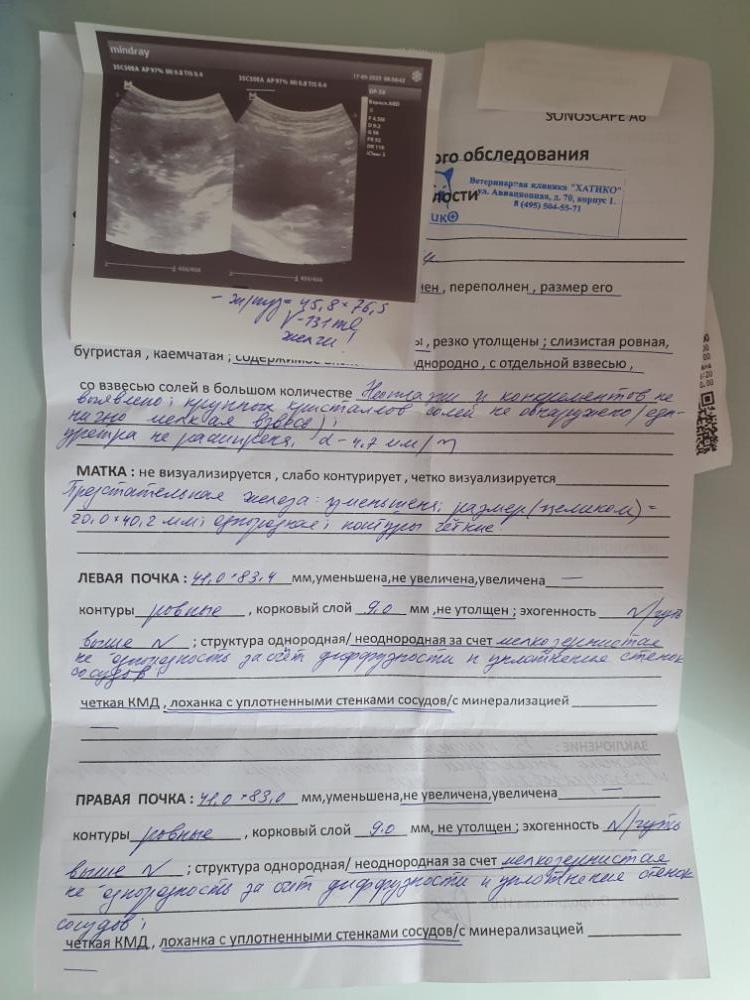 mindray
35C50EA AP 97% MI 0.8 TIS 0.4
35C50EA AP 97% MI 0.8 TIS 0.4
SONOSCAPE A6
ого обследования
лости
Ветеринарная клиника "ХАТИКО"
ул. Авиационная, д. 70, корпус 1.
8 (495) 504-55-71
ен , переполнен , размер его
- ж/пуз = 45,8 × 76,5
V - 131 ml
желчи !
ы , резко утолщены ; слизистая ровная,
бугристая , каемчатая ; содержимое
однородно , с отдельной взвесью ,
со взвесью солей в большом количестве Неоплазии и конкрементов не
выявлено; крупных кристаллов солей не обнаружено/еди-
нично мелкая взвесь/;
уретра не расширена; d - 4,7 мм/N
МАТКА : не визуализируется , слабо контурирует , четко визуализируется
Предстательная железа: уменьшена; размер (целиком) =
20,0 × 40,2 мм; однородная; контуры четкие.
ЛЕВАЯ ПОЧКА : 41,0 × 83,4 мм,уменьшена,не увеличена,увеличена —
контуры ровные , корковый слой 9,0 мм ,не утолщен ; эхогенность N/чуть
выше N ; структура однородная/ неоднородная за счет мелкозернистая
не однородность за счёт диффузности и уплотнения стенок
сосудов
четкая КМД , лоханка с уплотненными стенками сосудов/с минерализацией
—
ЗАКЛЮЧЕНИЕ:
ПРАВАЯ ПОЧКА : 41,0 × 83,0 мм,уменьшена,не увеличена,увеличена —
контуры ровные , корковый слой 9.0 мм, не утолщен ; эхогенность N/чуть
выше N ; структура однородная/ неоднородная за счет мелкозернистая
не однородность за счёт диффузности и уплотнения стенок
сосудов;
четкая КМД , лоханка с уплотненными стенками сосудов/с минерализацией
—